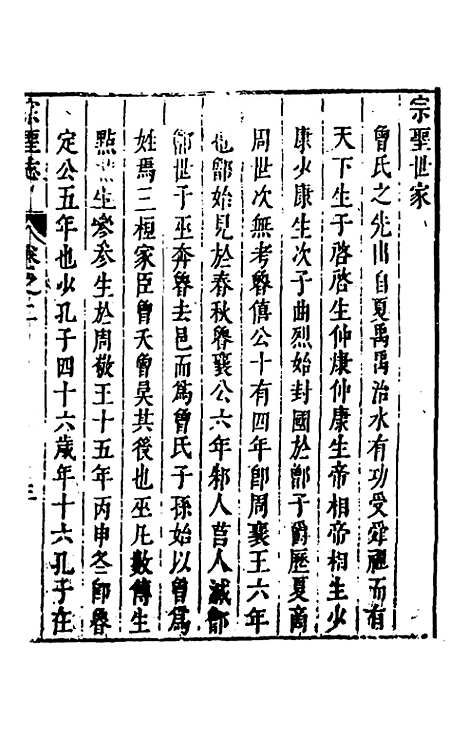 宗聖世家
曾氏之先出自夏禹禹治水有功受舜禪而有
天下生子啓啓生仲康仲康生帝相帝相生少
康少康生次子曲烈始封國於鄫子爵歷夏商
周世次無考魯僖公十有四年卽周襄王六年
也鄫始見於春秋魯襄公六年邾人莒人滅鄫
鄫世子巫奔魯去邑而爲曾氏子孫始以曾爲
姓焉三桓家臣曾夭曾昊其後也巫凡數傳生
點點生參參生於周敬王十五年丙申冬卽魯
定公五年也少孔子四十六歲年十六孔子在
宗聖志 卷之二 三